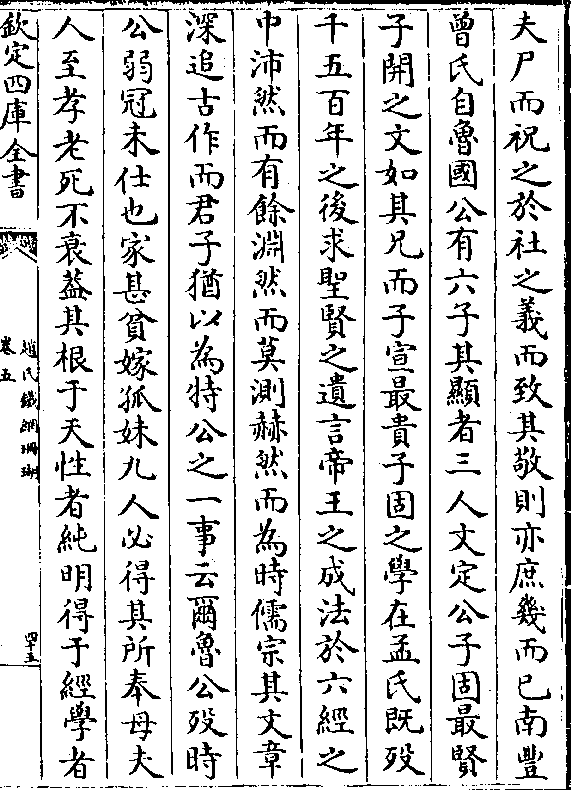 夫尸而祝之於社之義而致其敬則亦庶幾而已南豐
曾氏自魯國公有六子其顯者三人文定公子固最賢
子開之文如其兄而子宣最貴子固之學在孟氏既歿
千五百年之後求聖賢之遺言帝王之成法於六經之
中沛然而有餘淵然而莫測赫然而為時儒宗其文章
深追古作而君子猶以為特公之一事云爾魯公歿時
公弱冠未仕也家甚貧嫁孤妹九人必得其所奉母夫
人至孝老死不衰葢其根于天性者純明得于經學者
欽定四庫全書
趙氏鐵網珊瑚
卷五
四十五